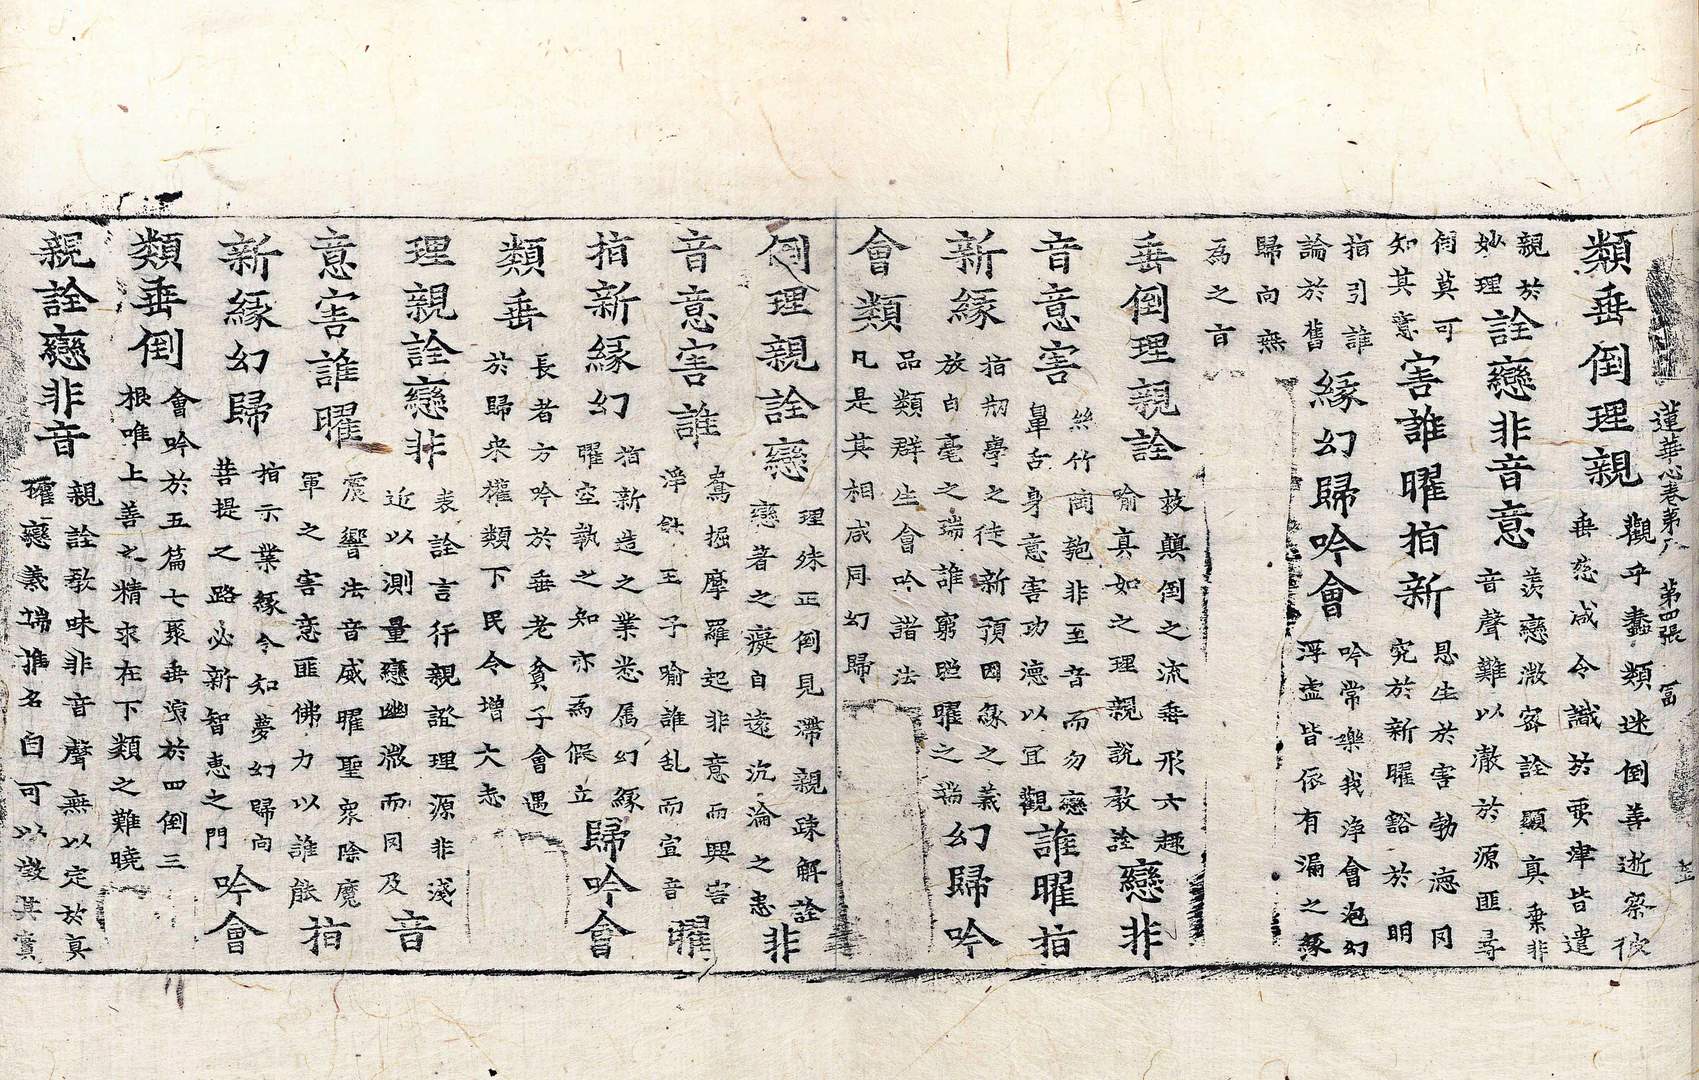 蓮華心卷第六 第四張 富
類垂倒理親
觀乎蠢類迷倒善逝察彼
垂慈咸令識於要津皆遣
親於
妙理
詮戀非音意
羨戀激容詮顯真乗非
音聲難以激於源匪尋
何莫可
知其意
害誰曜指新
思生於害勃德冈
究於新曜豁於明
指引誰
論於舊
緣幻歸吟會
吟常樂我淨會泡幻
浮虛皆依有漏之緣
歸向無
為之言
垂倒理親詮
故顛倒之流垂形六趣
喻真如之理親說教詮
戀非
音意害
絲竹匏非至音而勿戀
鼻舌身意害功德以冝觀
誰曜指
新緣
指初學之徒新預因緣之義
放白毫之瑞誰窮曜之端
幻歸吟
會類
品類群生會吟諧法
凡是其相咸同幻歸
倒理親詮戀
理殊正倒見滯親疎解詮
戀著之癡自遠沉淪之患
非
音意害誰
鴦掘摩羅起非意而興害
淨飯王子喻誰乱而宣音
曜
指新緣幻
指新造之業悉属幻緣
曜空執之知亦為假立
歸吟會
類垂
長者方吟於垂老貧子會遇
於歸来權類下民令增大志
理親詮戀非
表詮言行親證理源非淺
近以測量戀幽激而冈及
音
意害誰曜
震響法音威曜聖衆除魔
軍之害意匪佛力以誰能
指
新緣幻歸
指示業緣令知夢幻歸向
菩提之路必新智恵之門
吟會
類垂倒
會吟於五篇七聚垂諒於四倒三
根唯上善之精求在下類之難曉
親詮戀非音
親詮教昧非音聲無以定於真
權戀羨端推名目可以徵其實